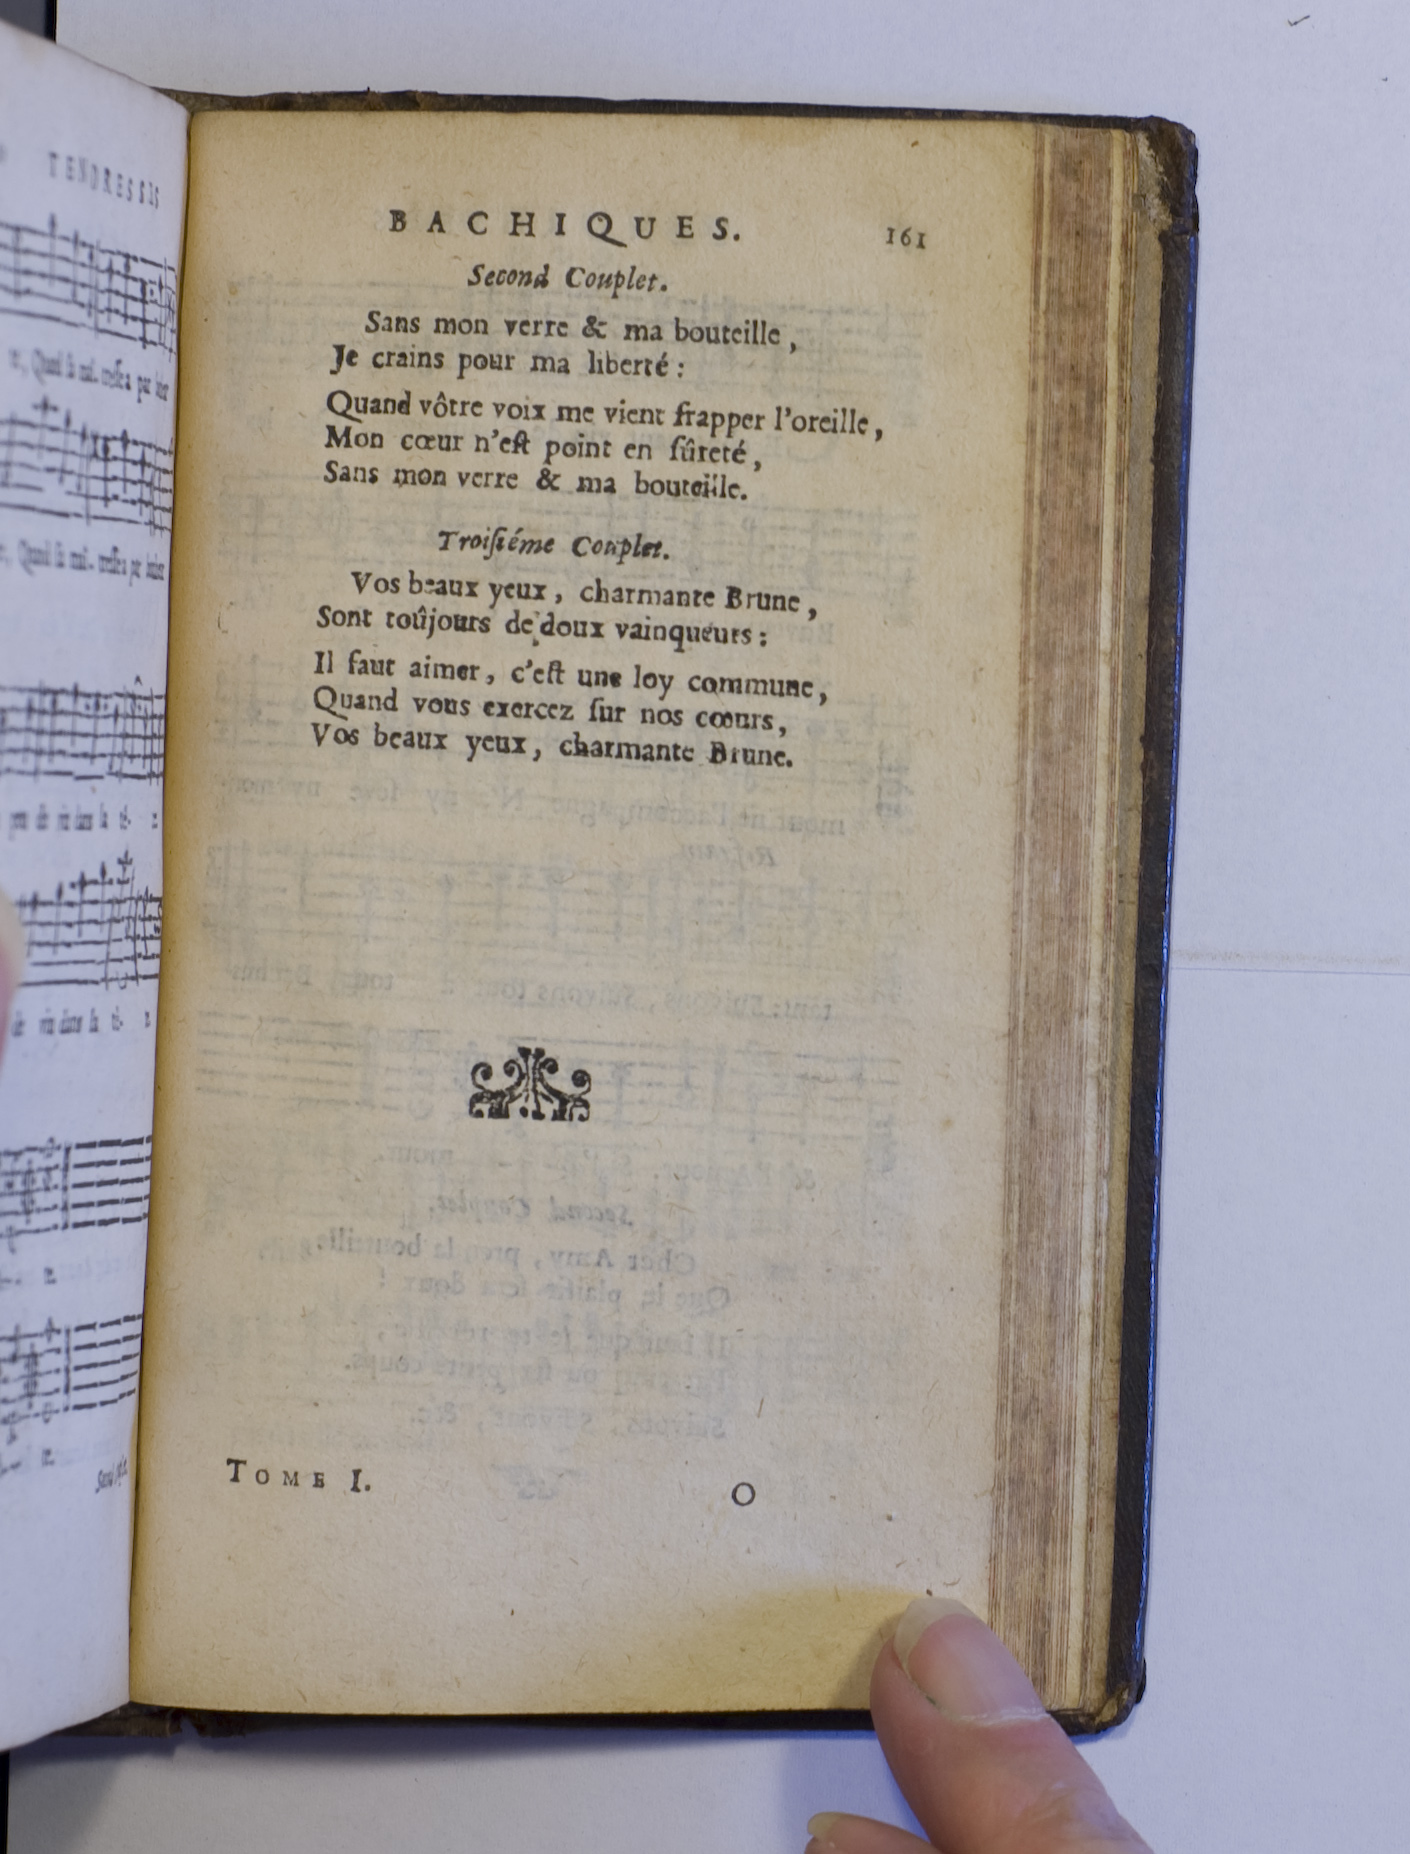 TENDRESSES
BACHIQUES. 161
Second Couplet.
Sans mon verre & ma bouteille,
Je crains pour ma liberté :
Quand vôtre voix me vient frapper l'oreille,
Mon cœur n'eſt point en ſûreté,
Sans mon verre & ma bouteille.
Troiſiéme Couplet.
Vos beaux yeux, charmante Brune,
Sont toûjours de doux vainqueurs :
Il faut aimer, c'eſt une loy commune,
Quand vous exercez ſur nos cœurs,
Vos beaux yeux, charmante Brune.
TOME I. O